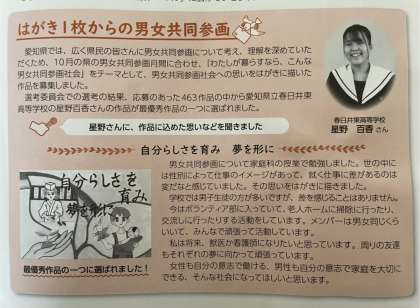 はがき1枚からの男女共同参画
愛知県では、広く県民の皆さんに男女共同参画について考え、理解を深めていた
だくため、10月の県の男女共同参画月間に合わせ、「わたしが暮すなら、こんな
男女共同参画社会」をテーマとして、男女共同参画社会への思いをはがきに描いた
作品を募集しました。
選考委員会での選考の結果、応募のあった463作品の中から愛知県立春日井東高
等学校の星野百香さんの作品が最優秀作品の一つに選ばれました。
春日井東高等学校
星野 百香さん
星野さんに、作品に込めた思いなどを聞きました
自分らしさを育み 夢を形に
男女共同参画について家庭科の授業で勉強しました。世の中に
は性別によって仕事のイメージがあって、就く仕事に差があるのは
変だなと感じていました。その思いをはがきに描きました。
学校では男子生徒の方が多いですが、差を感じることはありません。
今はボランティア部に入っていて、老人ホームに掃除に行ったり、
交流しに行ったりする活動をしています。メンバーは男女同じくら
いいて、みんなで頑張って活動しています。
私は将来、獣医か看護師になりたいと思っています。周りの友達
もそれぞれの夢に向かって頑張っています。
女性も自分の意志で働ける、男性も自分の意志で家庭を大切に
できる、そんな社会になってほしいと思います。
自分らしさを
育み
夢を形に
最優秀作品の一つに選ばれました!